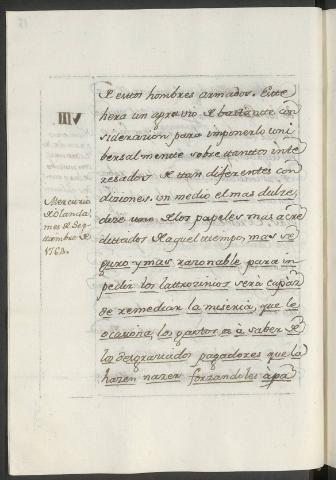 de estos hombres armados. Este
hera un agravio de bastante con
sideracion para imponerlo uni
bersalmente sobre tantos inte
resados de tan diferentes con
diziones. Un medio el mas dulze,
dize uno de los papeles mas acre
ditados de aquel tiempo, mas se
guro y mas razonable para im
pedir los latrozinios será capaz
de remediar la miseria, que le
ocasiona, los gastos, es à saber de
los desgraciados pagadores que la
hazen nazer forzandoles à pa
Mercurio
de Olanda
mes de Sep
tiembre de
176
VIII